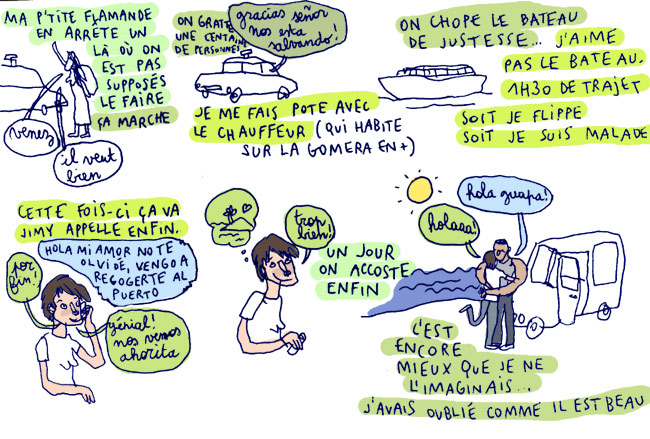 MA P'TITE FLAMANDE
EN ARRÊTE UN
LÀ OÙ ON
EST PAS
SUPPOSÉS
LE FAIRE
ÇA MARCHE
venez
il veut
bien
ON GRATTE
UNE CENTAINE
DE PERSONNES
gracias señor
nos esta
salvando!
JE ME FAIS POTE AVEC
LE CHAUFFEUR (QUI HABITE
SUR LA GOMERA EN +)
ON CHOPE LE BATEAU
DE JUSTESSE... J'AIME
PAS LE BATEAU.
1H30 DE TRAJET
SOIT JE FLIPPE
SOIT JE SUIS MALADE
CETTE FOIS-CI ÇA VA
JIMY APPELLE ENFIN.
HOLA MI AMOR NO TE
OLVIDÉ, VENGO A
REGOGERTE AL
PUERTO
por
fin!
génial!
nos vemos
ahorita
trop
bien!
UN JOUR
ON ACCOSTE
ENFIN
hola guapa!
holaaa!
C'EST
ENCORE
MIEUX QUE JE NE
L'IMAGINAIS...
J'AVAIS OUBLIÉ COMME IL EST BEAU